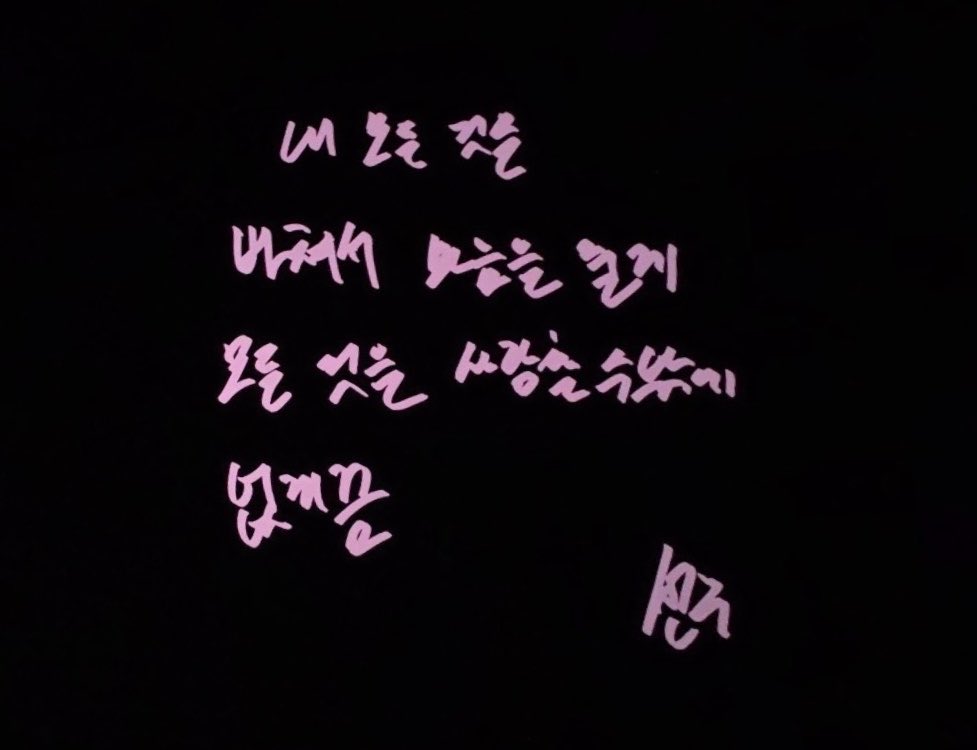 내 모든 것을
바쳐서 마음을 줄게
모든 것을 사랑할 수밖에
없게끔